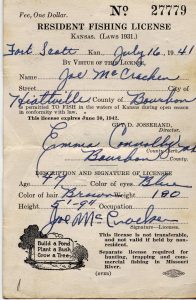 Fee, One Dollar.
No 27779
RESIDENT FISHING LICENSE
KANSAS. (LAWS 1931.)
Fort Scott Kan., July 16, 1941
BY VIRTUE OF THIS LICENSE,
Name Joe McCracken
Street City of
Hiattville County of Bourbon
is permitted TO FISH in the waters of Kansas during open season
in conformity with law.
This license expires June 30, 1942.
GUY D. JOSSERAND,
Director.
Emma Connolly
County Clerk.
Bourbon County.
DESCRIPTION AND SIGNATURE OF LICENSEE
Age Color of eyes Blue
Color of hair Brown Weight 180
Height 5'- Occupation
Joe McCracken
Signature—Licensee.
This license is not transferable,
and not valid if held by non-
resident.
Separate license required for
hunting, trapping and com-
mercial fishing in Missouri
River.
Build a Pond
Plant a Bush,
Grow a Tree.